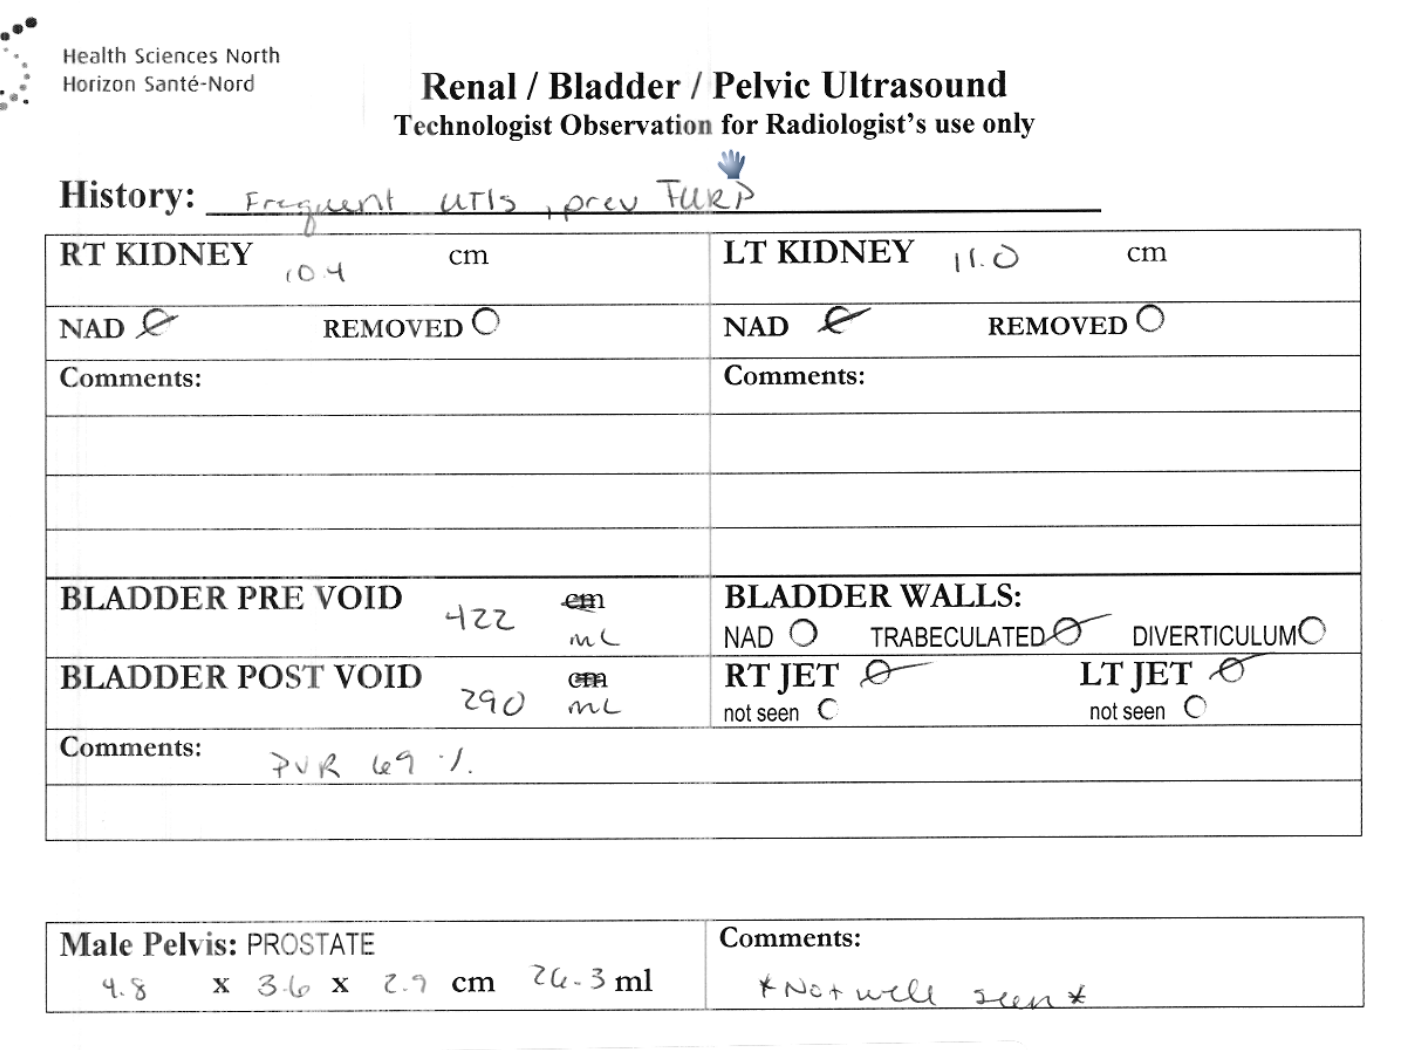 Health Sciences North
Horizon Santé-Nord
Renal / Bladder / Pelvic Ultrasound
Technologist Observation for Radiologist's use only
History: Frequent UTIs, prev TURP
RT KIDNEY 10.4 cm LT KIDNEY 11.0 cm
NAD REMOVED NAD REMOVED
Comments: Comments:
BLADDER PRE VOID 422 cm mL BLADDER WALLS:
NAD TRABECULATED DIVERTICULUM
BLADDER POST VOID 290 cm mL RT JET LT JET
not seen not seen
Comments: PVR 69 %.
Male Pelvis: PROSTATE Comments:
4.8 x 3.6 x 2.9 cm 26.3 ml *Not well seen*